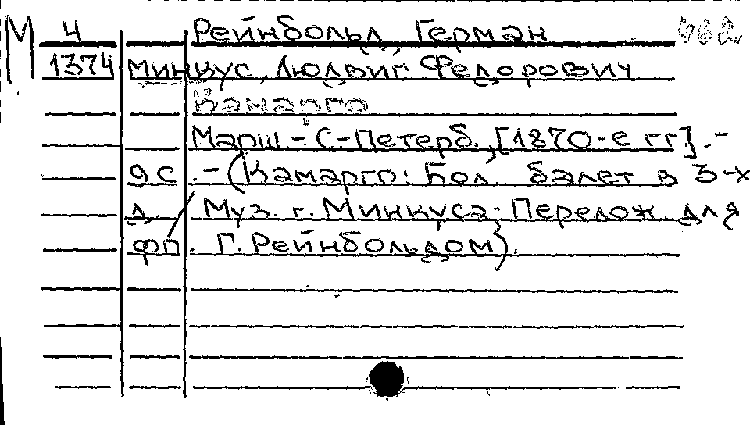 М 4 Рейнбольд, Герман
1374 Минкус, Людвиг Федорович
Камарго
Марш - С-Петерб., [1870-е гг].-
9с.-(Камарго: Бол. балет в 3-х
д. Муз. г. Минкуса; Перелож. для
фп. Г. Рейнбольдом).